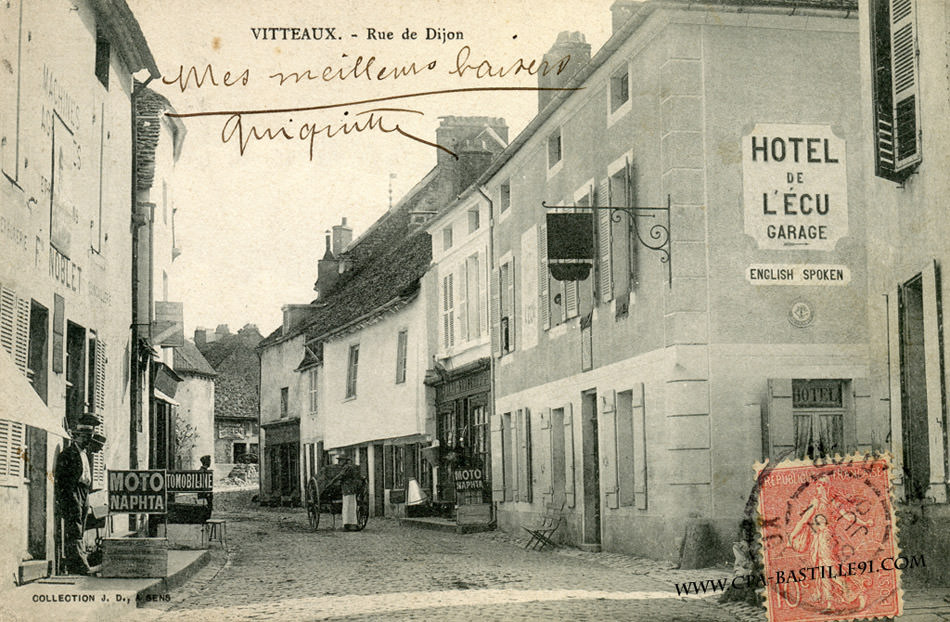 VITTEAUX. - Rue de Dijon
Mes meilleurs baisers
MACHINES
F. NOBLET
HOTEL
DE
L'ÉCU
GARAGE
ENGLISH SPOKEN
HOTEL
MOTO
NAPHTA
TOMOBILINE
MOTO
NAPHTA
REPUBLIQUE FRANÇAISE
10
WWW.CPA-BASTILLE91.COM
COLLECTION J. D., A SENS